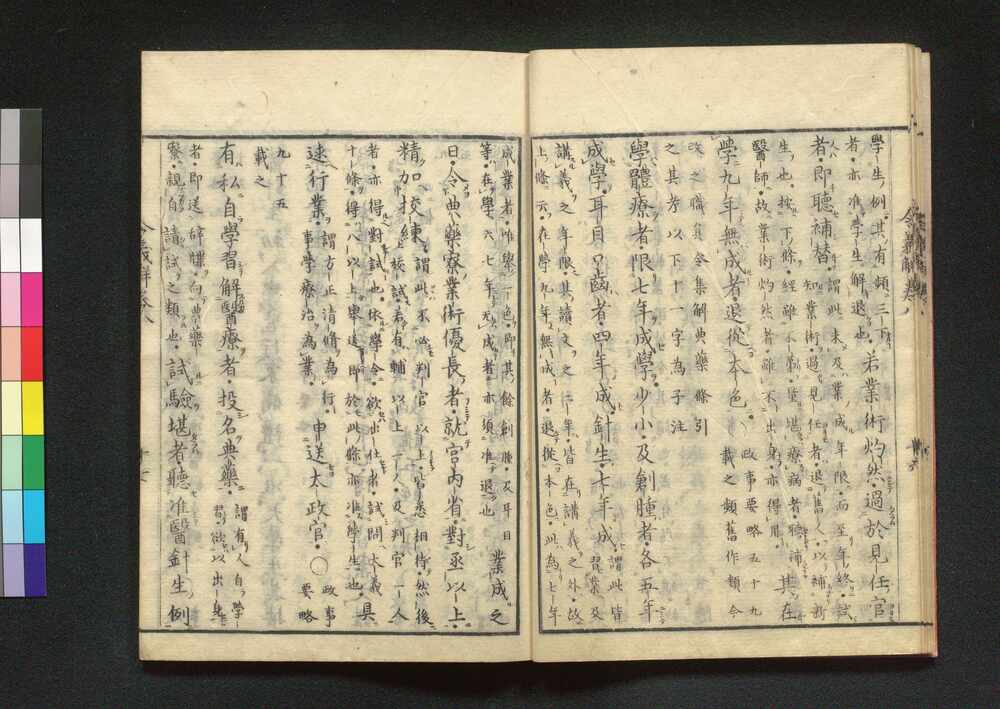 學生例其有頻三下
者亦准學生解退也
若業術灼然過於見任官
者即聽補替
謂此未及業成年限而至年終試
知業術過見任者退舊人以補新
生也按下條經雖不第堪療病者聽補
醫師故業術灼然者雖不出身亦得用
其在
學九年無成者退從本色
政事要略五十九
載之類舊作頻今
改之職員令集解典藥條引
之其考以下十一字為子注
學體療者限七年成學少小及創腫者各五年
成學耳目口齒者四年成針生七年成
謂此皆
習業及
講義之年限其讀文之年皆在講義之外故
上條云在學九年無成者退從本色此為七年
成業者唯舉一色即其餘創腫及耳目
等在學六七年无成者亦須准退也
業成之
日令典藥寮業術優長者就宮內省對丞以上
精加挍練
謂此不必判官以上皆悉相待然後
挍試若有輔以上一人及判官一人
者亦得對試也依學令欲出仕者試問大義
十條得八以上舉送即於此條亦准學生也
具
述行業
謂方正清脩為行
事學療治為業
申送太政官○
政事
要略
九十五
載之
有私自學習解醫療者投名典藥
謂有人自學
習欲以出身
者即送辭牒向典藥
寮親自請試之類也
試驗堪者聽准醫針生例